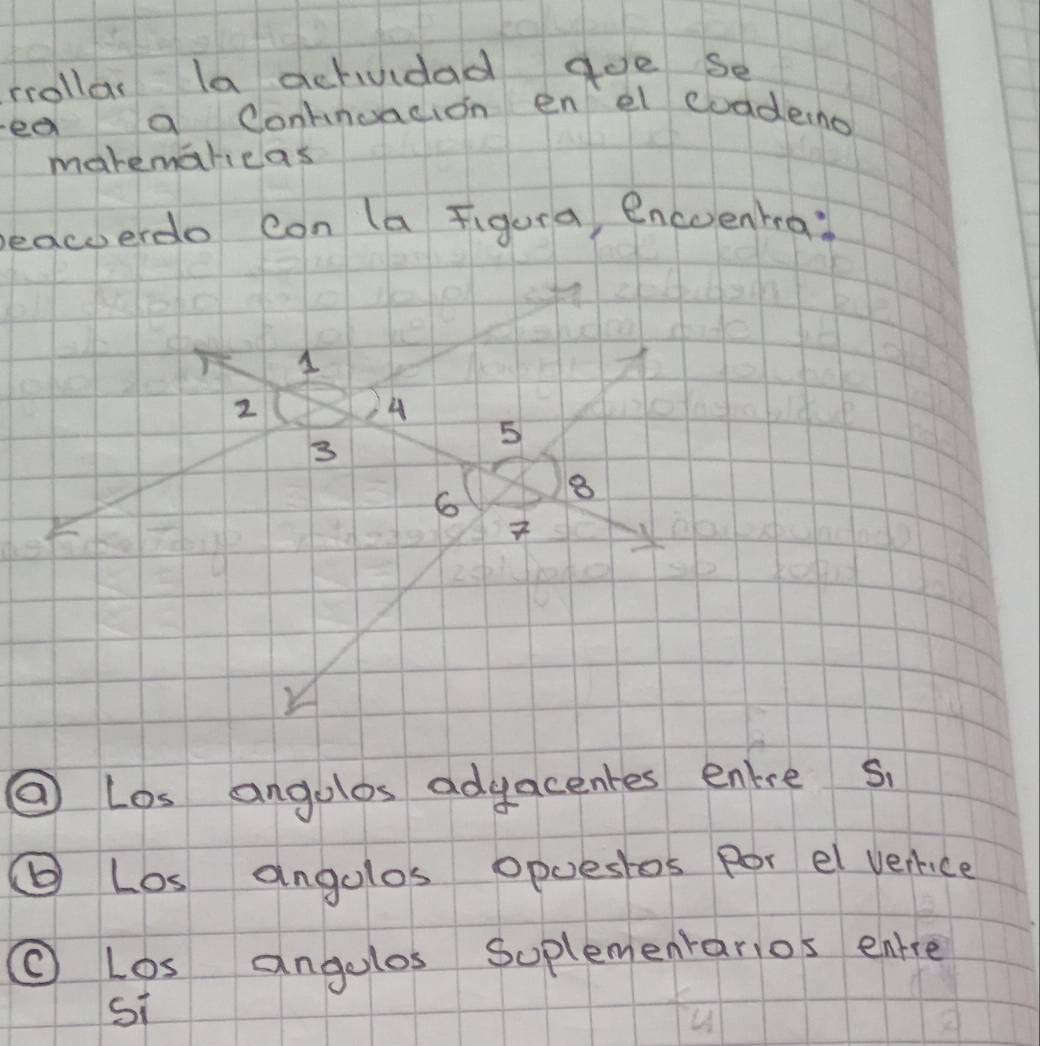 rrollar la actividad que se
ea a Continuación en el cuaderno
matemáticas
eacuerdo con la Figura, encuentra:
1
2 4
3
5
6 8
7
ⓐ Los angulos adyacentes entre si
ⓑ Los angulos opuestos Por el vertice
ⓒ Los angulos Suplementarios entre
Si